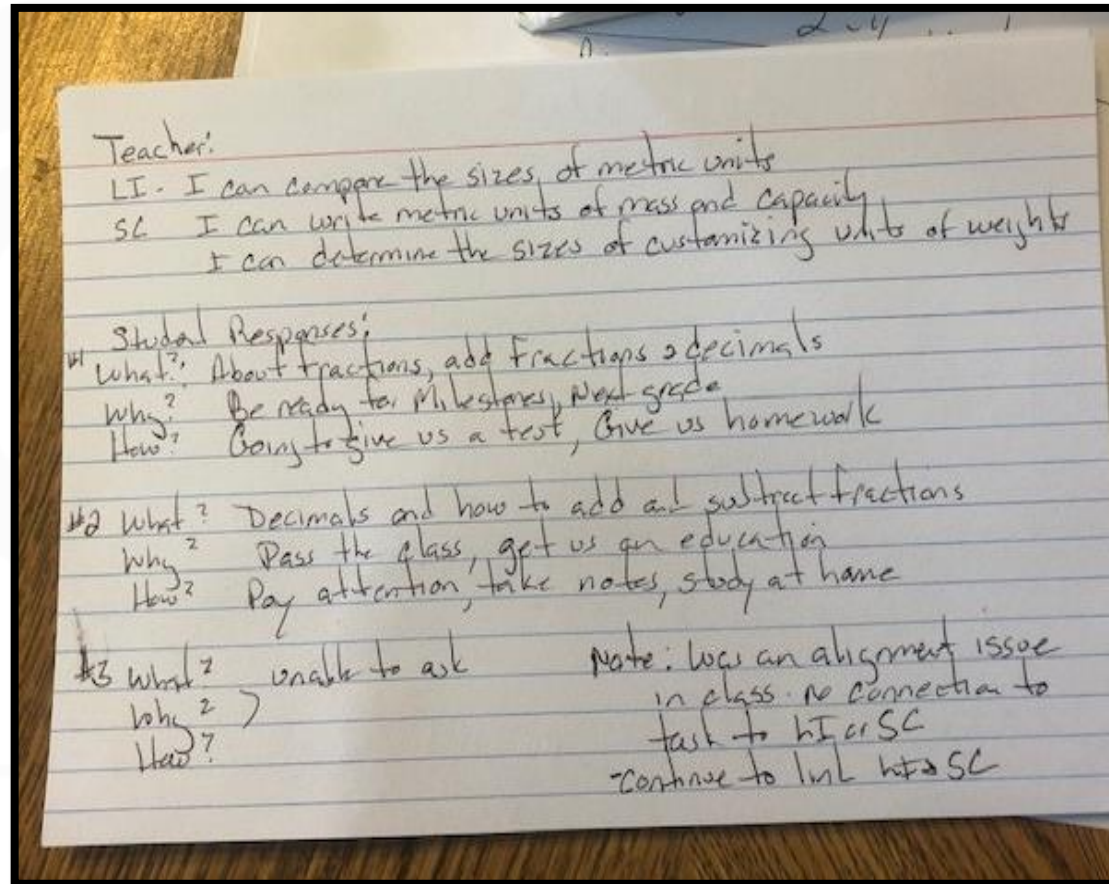 Teacher:
LI - I can compare the sizes of metric units
SC I can write metric units of mass and capacity
I can determine the sizes of customizing units of weights
Student Responses:
#1 What? About fractions, add fractions & decimals
Why? Be ready for Milestones, Next grade
How? Going to give us a test, Give us homework
#2 What? Decimals and how to add and subtract fractions
Why? Pass the class, get us an education
How? Pay attention, take notes, study at home
#3 What? unable to ask
Why?
How?
Note: Was an alignment issue
in class. no connection to
task to LI or SC
-continue to link LI & SC